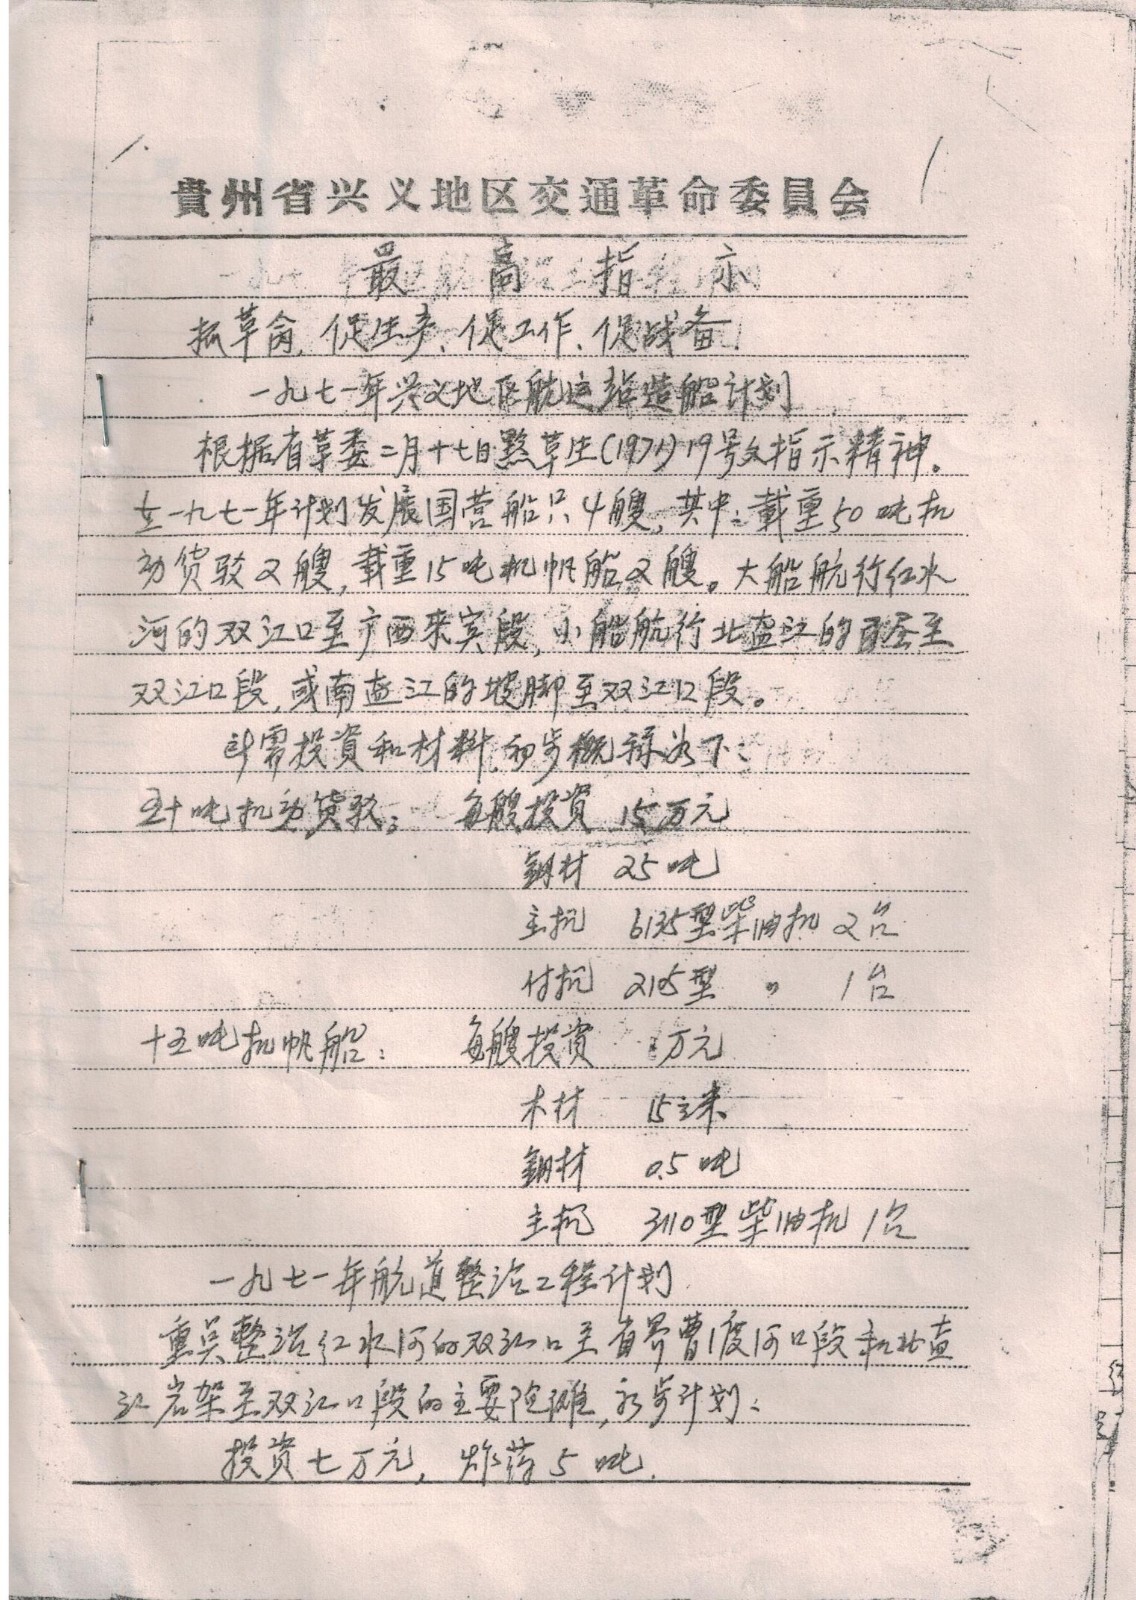 貴州省兴义地区交通革命委員会
最高指示
抓革命、促生产、促工作、促战备!
一九七一年兴义地区航运站造船计划
根据省革委二月十七日黔革生(1971)19号文指示精神。
在一九七一年计划发展国营船只4艘,其中:载重50吨机
动货驳2艘,载重15吨机帆船2艘。大船航行红水
河的双江口至广西来宾段,小船航行北盘江的百层至
双江口段,或南盘江的坡脚至双江口段。
所需投資和材料,初步概祘如下:
五十吨机动货驳: 每艘投資 15万元
鋼材 25吨
主机 6135型柴油机 2台
付机 2105型 〃 1台
十五吨机帆船: 每艘投資 万元
木材 15立米
鋼材 0.5吨
主机 3110型柴油机 1台
一九七一年航道整治工程计划
重点整治红水河的双江口至省界曹渡河口段和北盘
江岩架至双江口段的主要险滩,初步计划:
投资七万元,炸药5吨.